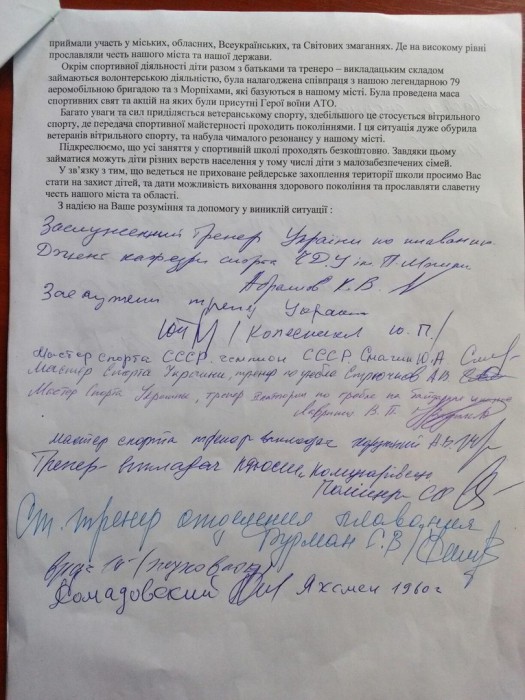 приймали участь у міських, обласних, Всеукраїнських, та Світових змаганнях. Де на високому рівні
прославляли честь нашого міста та нашої держави.
Окрім спортивної діяльності діти разом з батьками та тренеро – викладацьким складом
займаються волонтерською діяльністю, була налагоджена співпраця з нашою легендарною 79
аеромобільною бригадою та з Морпіхами, які базуються в нашому місті. Була проведена маса
спортивних свят та акцій на яких були присутні Герої воїни АТО.
Багато уваги та сил приділяється ветеранському спорту, здебільшого це стосується вітрильного
спорту, де передача спортивної майстерності проходить поколіннями. І ця ситуація дуже обурила
ветеранів вітрильного спорту, та набула чималого резонансу у нашому місті.
Підкреслюємо, що усі заняття у спортивній школі проходять безкоштовно. Завдяки цьому
займатися можуть діти різних верств населення у тому числі діти з малозабезпечених сімей.
У зв'язку з тим, що ведеться не приховане рейдерське захоплення території школи просимо Вас
стати на захист дітей, та дати можливість виховання здорового покоління та прославляти славетну
честь нашого міста та області.
З надією на Ваше розуміння та допомогу у виниклій ситуації :
Заслуженный тренер України по плаванию
Доцент кафедри спорта ЧДУ ім П Могили
К. В.
тренер України
Ю. П./
Мастер спорта СССР, чемпион СССР Ю.А.
Мастер Спорта Украчини, тренер по гребле А.В.
Мастер Спорта Украчини, тренер по гребле на
В. П.
Мастер спорта тренер викладач А.В.
Тренер-викладач КДЮСШ "Комунарівець"
Ст. тренер отделения плавания
Фурман С.В/
Яхсмен 1960г